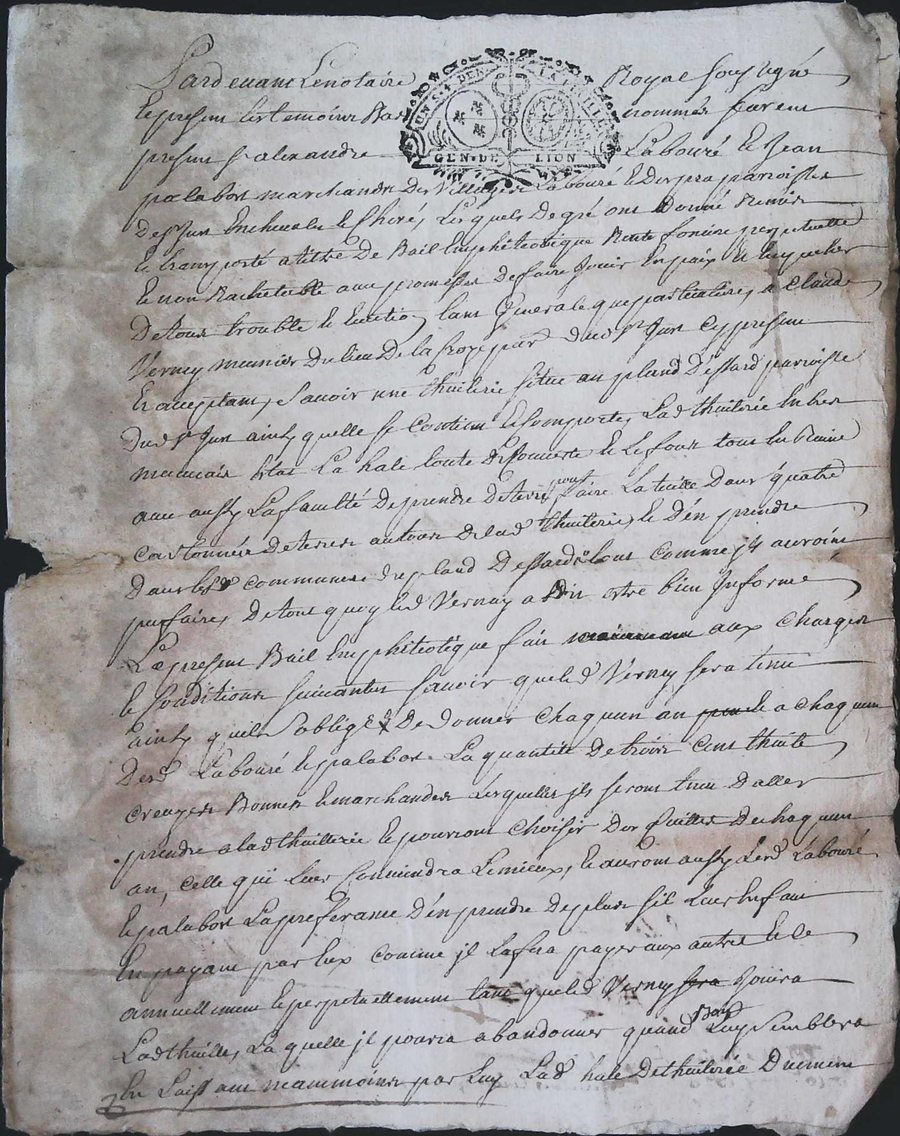 Pardevant Le notaire Royal soussigné
UN S. 4. DEN. LA FEUILLE
GEN. DE LION
Et presens Les temoins Bas nommés furent
presens Sr alexandre Labouré Et Jean
palabost marchands Des Villages Labouré Et Despra parroisses
De St Just En chevalet Et Cheré, Lesquels De gré ont Donné Remis
Et transporté a titre De Bail Emphiteotique Rente fonciere perpetuelle
Et non Rachetable avec promesses De faire Jouir En paix Et Empecher
De tous trouble Et Eviction, tant Generale que particuliere, a Claude
Vernay meunier Du lieu De la par. Dud. St Just Cy present
Et acceptant, Savoir une thuilerie située au pland D'Essard parroisse
Dud. St Just ainsy quelle Se Contient Et Comporte, Lad. thuilerie En tres
mauvais Etat La hale toute Decouverte Et Le four tout En Ruine
avec aussy La faculté De prendre De terre pour faire La tuille Dans quatre
cartonnées De terres autour De lad. thuilerie, Et D'en prendre
Dans Les communes Du pland D'Essard, tout comme jls auroint
pu faire, De tout quoy led. Vernay a Dit Estre bien Informé
Le present Bail Emphiteotique fait aux Charges
Et Conditions Suivantes Savoir que led. Vernay sera tenu
ainsy quil S'oblige De Donner Chaquun an a Chaquun
Desd. Labouré Et palabost La quantité De trois Cens thuile
creuzes Bonnes Et marchandes Lesquelles jls seront tenu D'aller
prendre a lad. thuillerie Et pourront Choisir Des De chaquun
an, celle qui Leur Conviendra Le mieux, Et auront aussy Lesd. Labouré
Et palabost La preférance D'en prendre De plus sil Leur En faut
En payant par Eux comme jl La fera payer aux autres Et Ce
annuellement Et perpetuellement tant que led. Vernay Jouira
Lad. thuille, La quelle jl poura abandonner quand Bon Luy Semblera
En Laissant neammoins par Luy Lad. hale De thuilerie Du meme